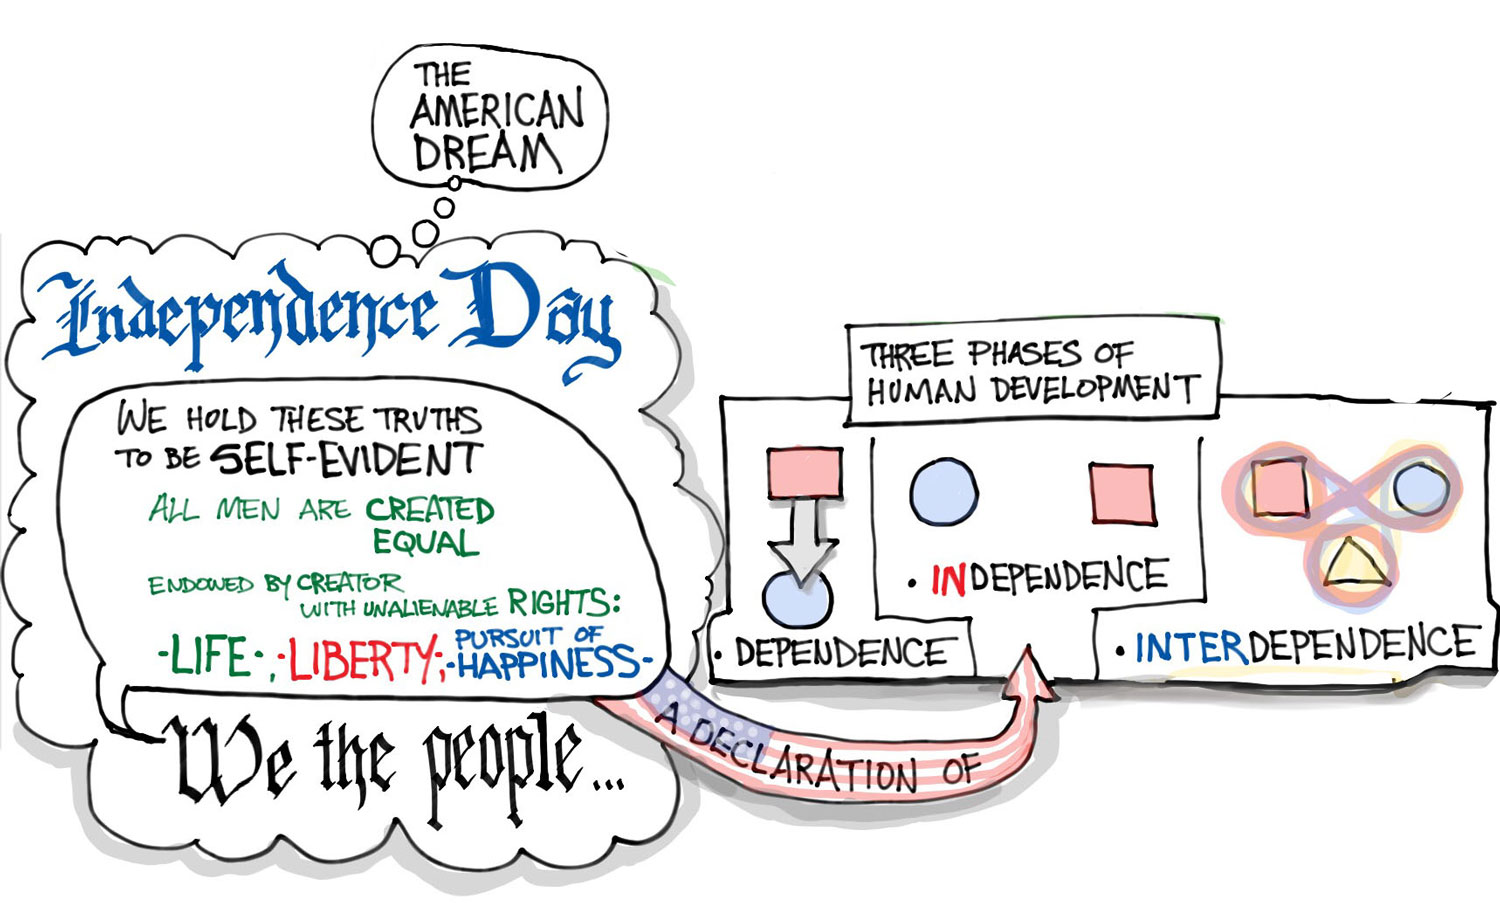 THE
AMERICAN
DREAM
Independence Day
WE HOLD THESE TRUTHS
TO BE SELF-EVIDENT
ALL MEN ARE CREATED
EQUAL
ENDOWED BY CREATOR
WITH UNALIENABLE RIGHTS:
-LIFE-; -LIBERTY-; PURSUIT OF
-HAPPINESS-
We the people...
A DECLARATION OF
THREE PHASES OF
HUMAN DEVELOPMENT
• DEPENDENCE
• INDEPENDENCE
• INTERDEPENDENCE